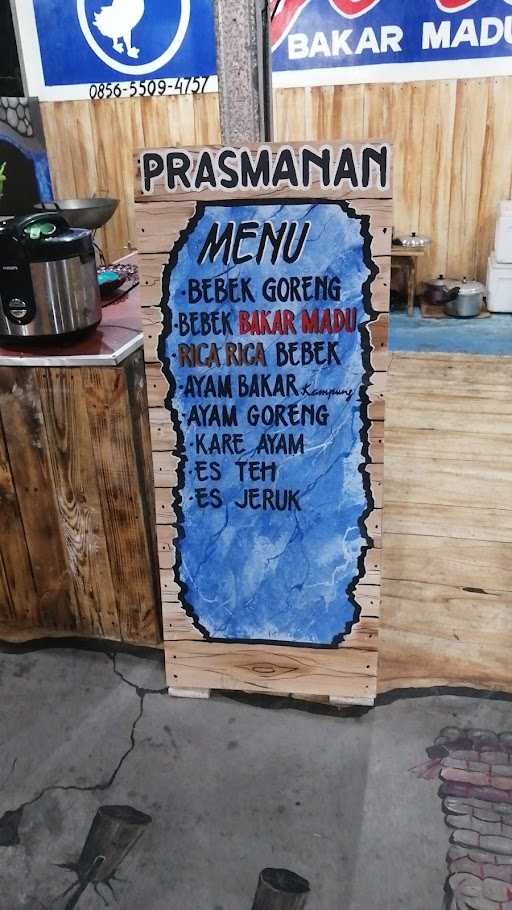 BAKAR MADU
0856-5509-4757
PRASMANAN
MENU
·BEBEK GORENG
·BEBEK BAKAR MADU
·RICA RICA BEBEK
·AYAM BAKAR Kampung
·AYAM GORENG
·KARE AYAM
·ES TEH
·ES JERUK